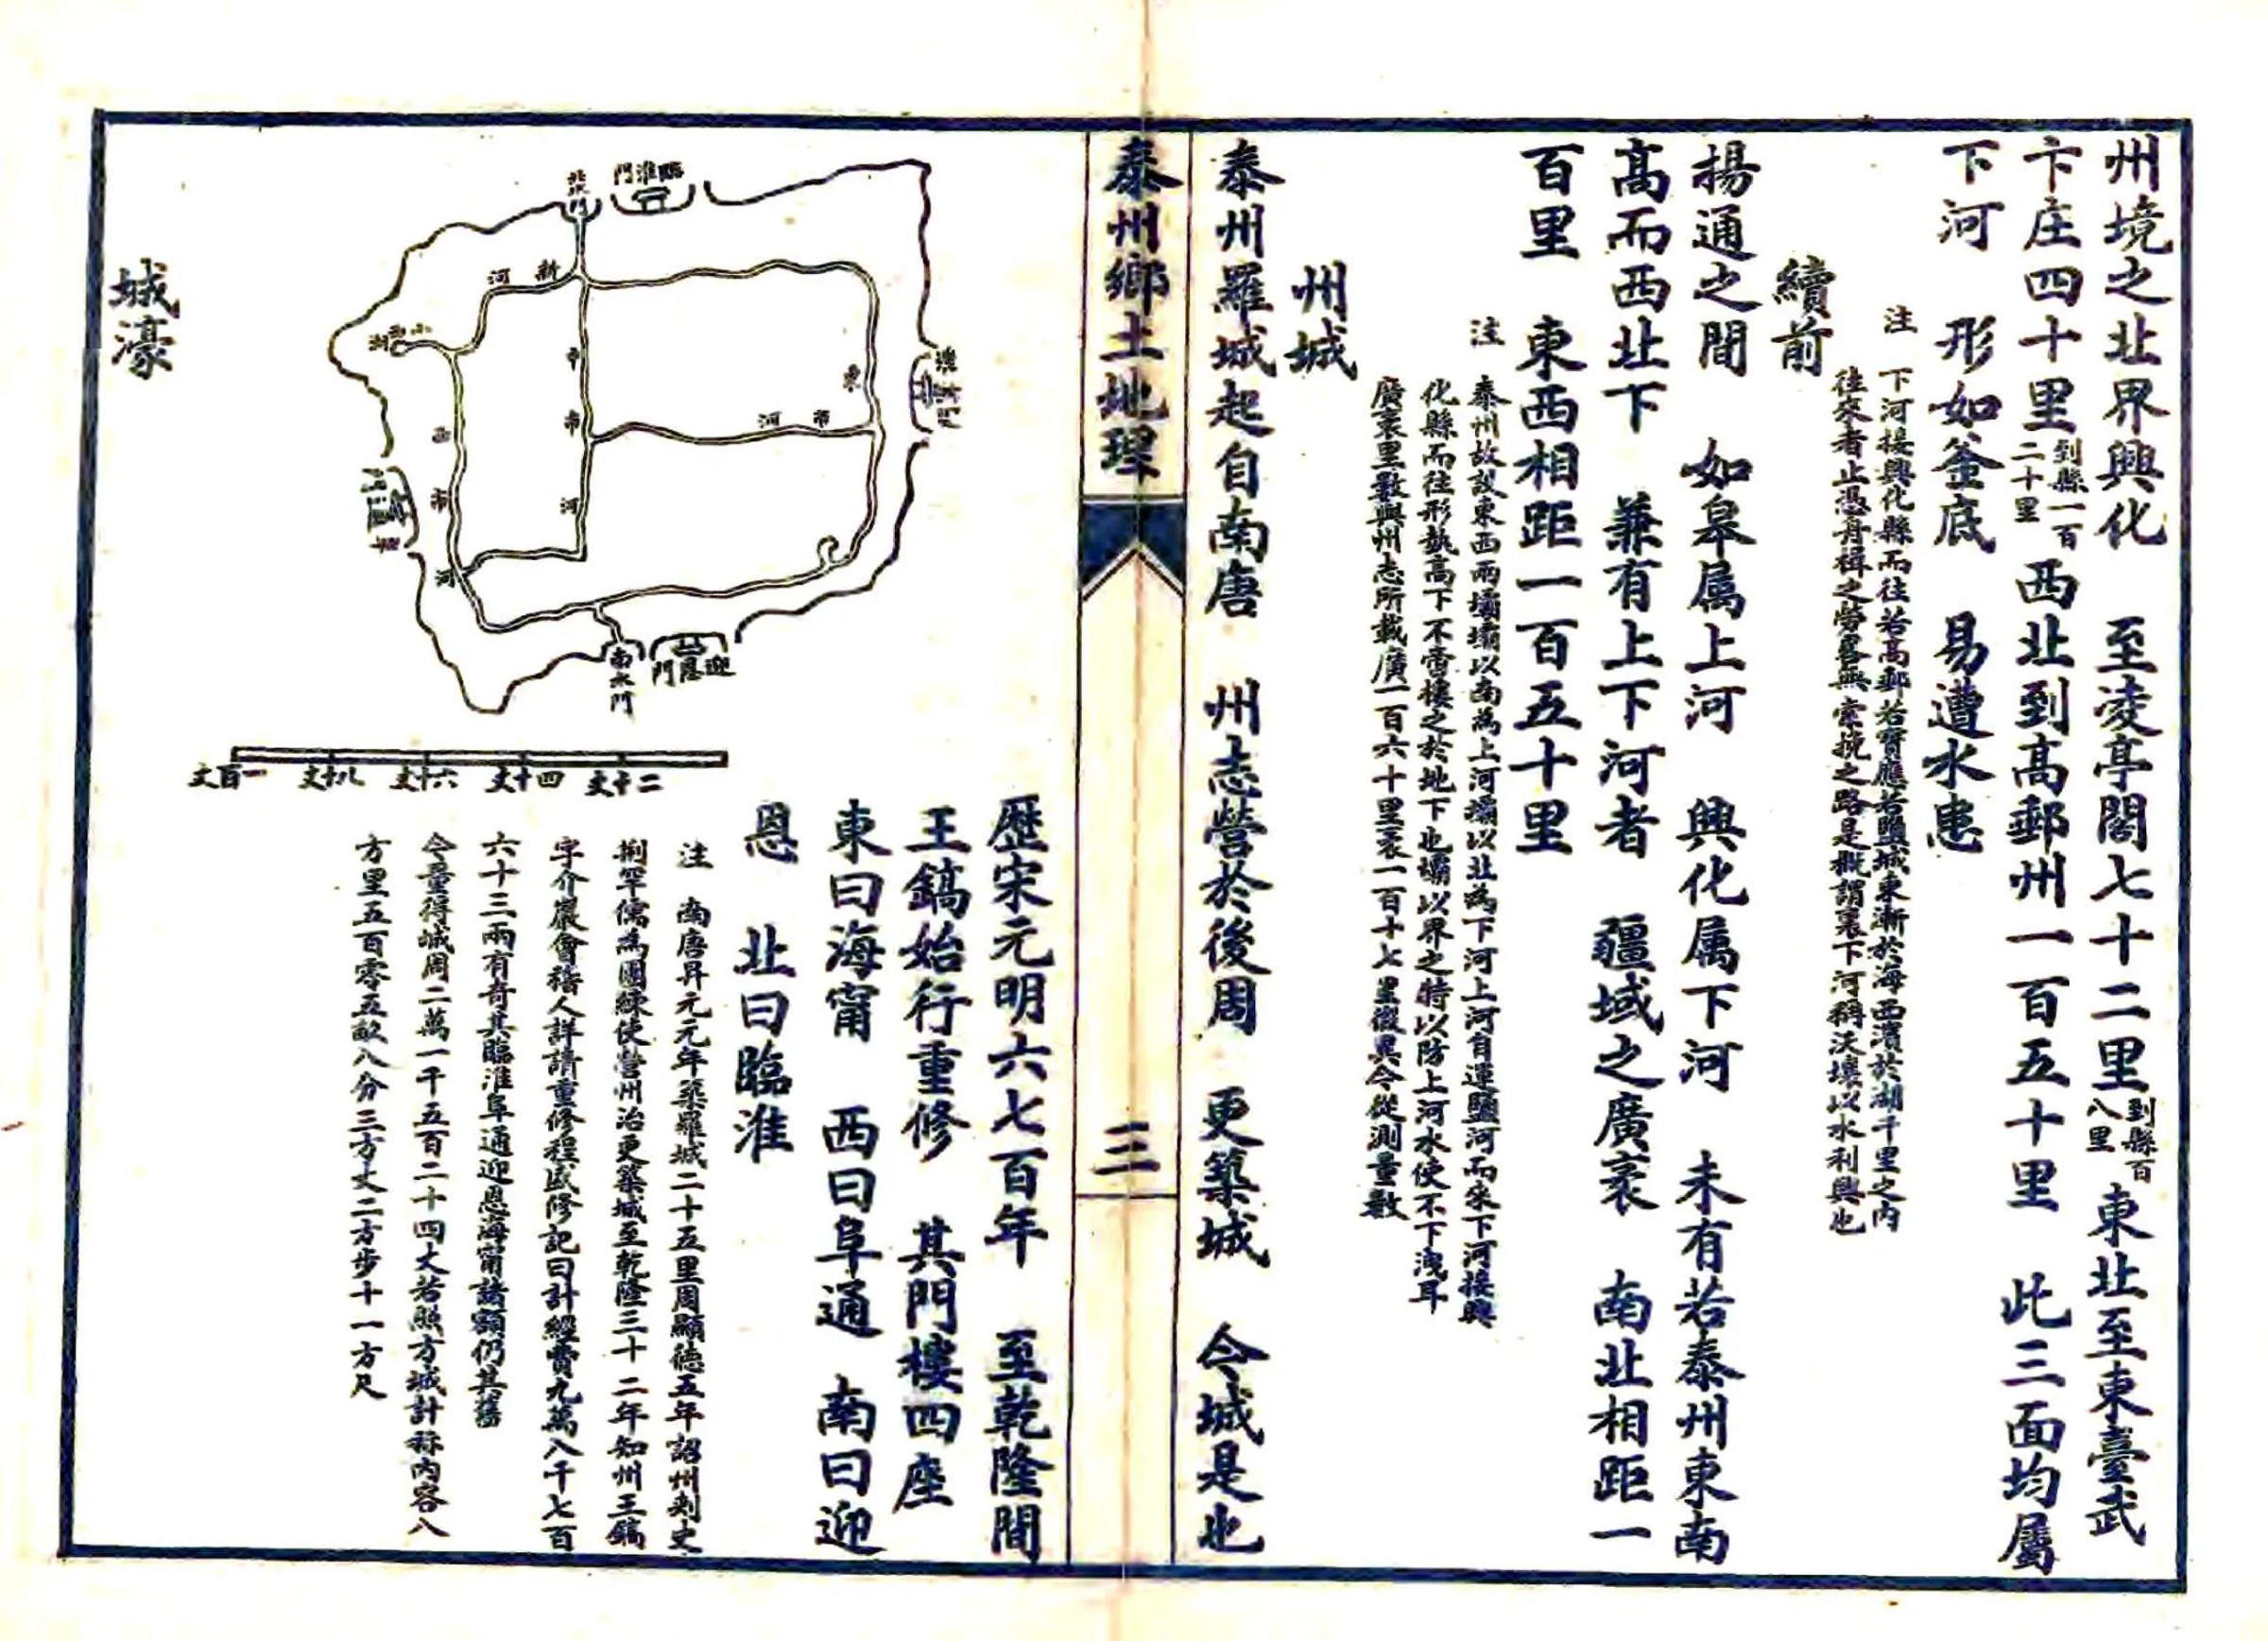 州境之北界興化　至凌亭閣七十二里到縣百八里東北至東臺武
卞庄四十里到縣一百二十里西北到高郵州一百五十里　此三面均屬
下河　形如釜底　易遭水患
注　下河接興化縣而往若高郵若寶應若鹽城東漸於海西濱於湖千里之內
往來者止憑舟楫之勞畧無牽挽之路是概謂裏下河稱沃壤以水利興也
續前
揚通之間　如皋属上河　興化属下河　未有若泰州東南
高而西北下　兼有上下河者　疆域之廣袤　南北相距一
百里　東西相距一百五十里
注　泰州故設東西兩壩壩以南為上河壩以北為下河上河自運鹽河而來下河接興
化縣而往形勢高下不啻樓之於地下也壩以界之特以防上河水使不下洩耳
廣袤里數與州志所載廣一百六十里袤一百十七里微異今從測量數
州城
泰州羅城起自南唐　州志營於後周　更築城　今城是也
泰州鄉土地理
三
歷宋元明六七百年　至乾隆間
王鎬始行重修　其門樓四座
東曰海甯　西曰阜通　南曰迎
恩　北曰臨淮
注　南唐昇元元年築羅城二十五里周顯德五年詔州刺史
荆罕儒為團練使營州治更築城至乾隆三十二年知州王鎬
字介巖會稽人詳請重修程盛修記曰計經費九萬八千七百
六十三兩有奇其臨淮阜通迎恩海甯諸額仍其舊
今量得城周二萬一千五百二十四丈若照方城計稱內容八
方里五百零五畝八分三方丈二方步十一方尺
北水門
臨淮門
新河
小西湖
中市河
東市河
西市河
南水門
迎恩門
二十丈
四十丈
六十丈
八十丈
一百丈
城濠